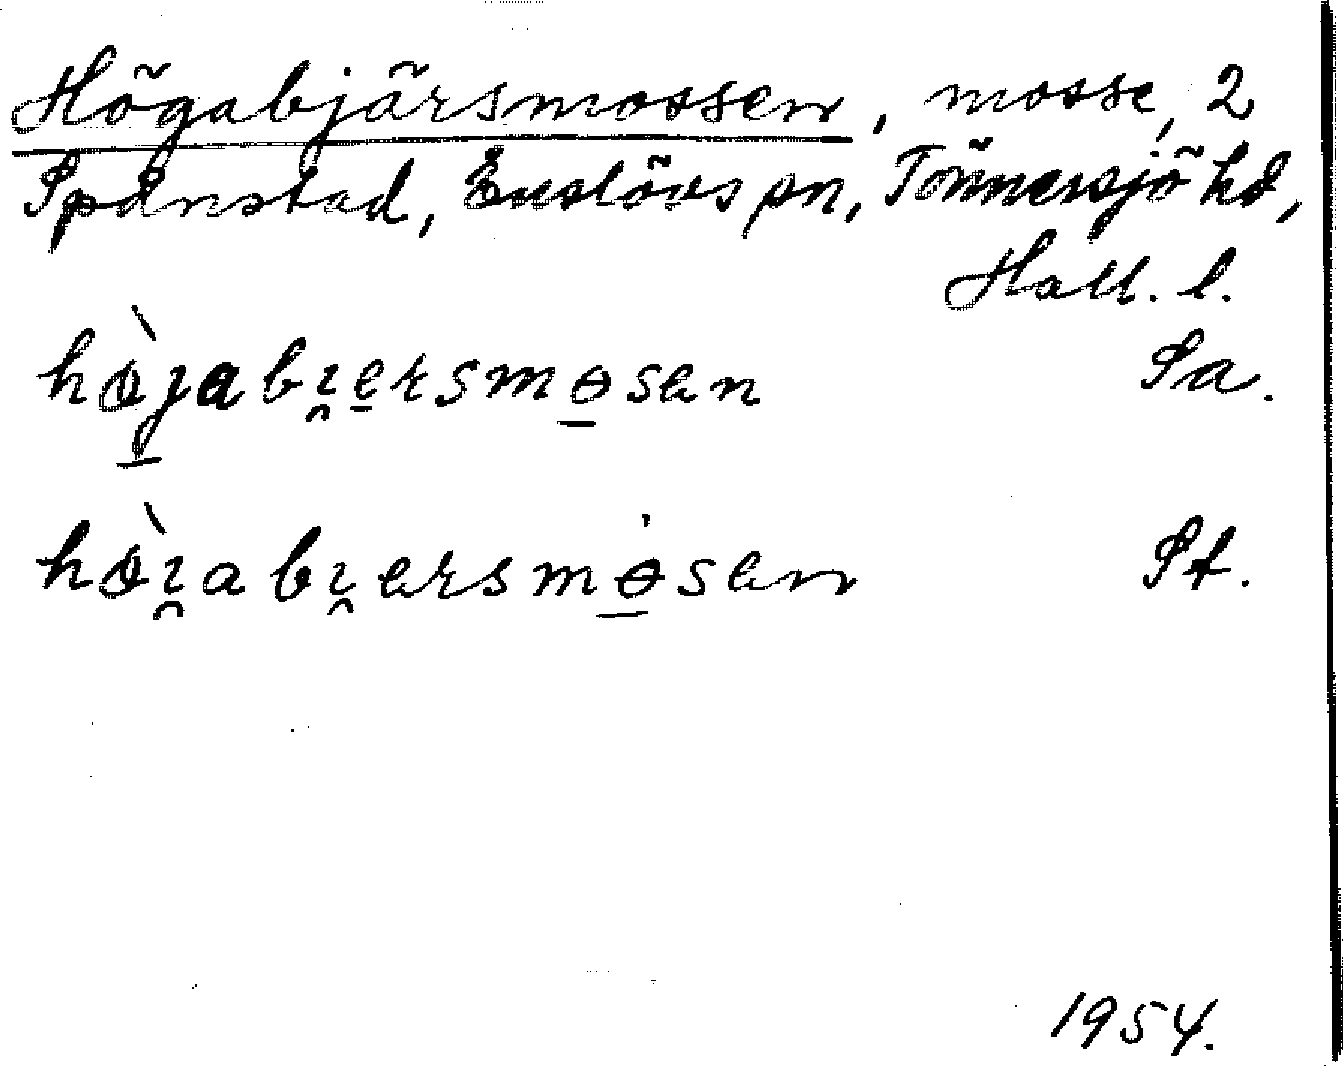 Högabjärsmossen, mosse, 2
Spånstad, Enslövs sn, Tönnersjö hd,
Hall. l.
hø̀jabı̯e̠rsmɵ̠sen Sa.
hø̀ı̯abı̯ersmɵ̠sen St.
1954.